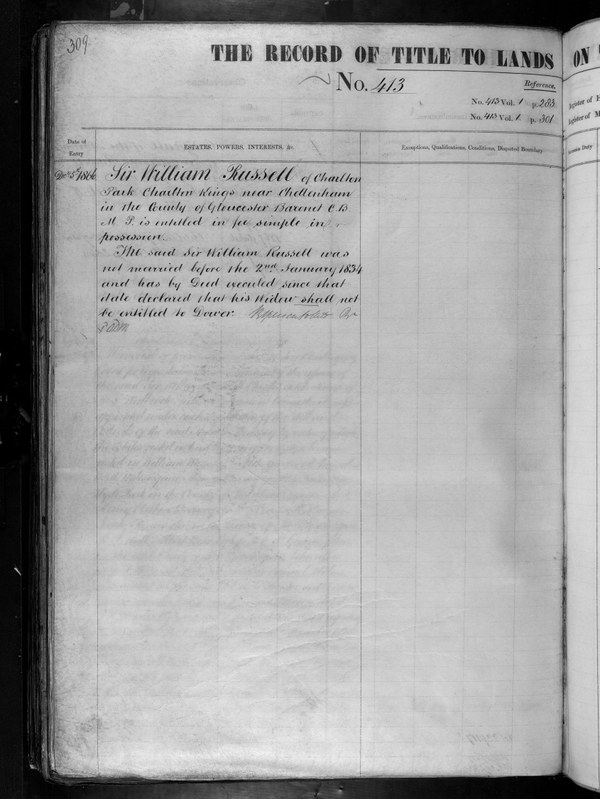 309
THE RECORD OF TITLE TO LANDS
ON
No. 413
Reference.
No. 413 Vol. 1 p. 283.
No. 413 Vol. 1. p. 301
Register of
Register of M
Date of
Entry
ESTATES, POWERS, INTERESTS, &c.
Exceptions, Qualifications, Conditions, Disputed Boundary
Duty
Decr. 5th 1866
Sir William Russell of Charlton
Park Charlton Kings near Cheltenham
in the County of Gloucester Baronet C.B
M. P. is entitled in fee simple in
possession.
The said Sir William Russell was
not married before the 2nd January 1834
and has by Deed executed since that
date declared that his Widow shall not
be entitled to Dower.